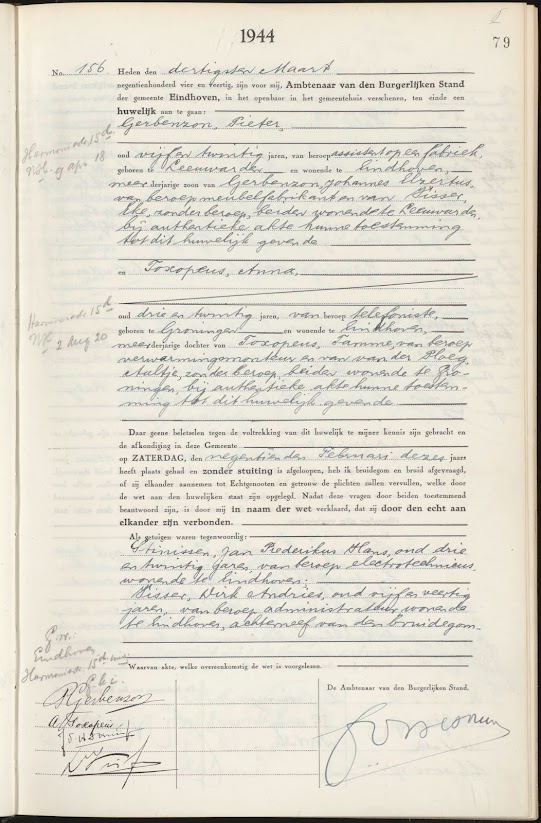 1944
79
No. 156 Heden den dertigsten Maart
negentienhonderd vier en veertig, zijn voor mij, Ambtenaar van den Burgerlijken Stand
der gemeente Eindhoven, in het openbaar in het gemeentehuis verschenen, ten einde een
huwelijk aan te gaan:
Gerbenzon, Pieter,
Hermonieds 15d
NH. 9 apr 18
oud vijf en twintig jaren, van beroep assistent op een fabriek,
geboren te Leeuwarden en wonende te Eindhoven,
meerderjarige zoon van Gerbenzon, Johannes Uzertus,
van beroep meubelfabrikant en van Visser,
Eke, zonder beroep, beiden wonende te Leeuwarden,
bij authentieke akte hunne toestemming
tot dit huwelijk gevende
en Toxopeus, Anna,
15d
2 Aug 20
oud drie en twintig jaren, van beroep telefoniste,
geboren te Groningen en wonende te Eindhoven,
meerderjarige dochter van Toxopeus, Tamme, van beroep
verwarmingsmonteur en van van der Ploeg,
Aultje, zonder beroep, beiden wonende te Gro-
ningen, bij authentieke akte hunne toestem-
ming tot dit huwelijk gevende
Daar geene beletselen tegen de voltrekking van dit huwelijk te mijner kennis zijn gebracht en
de afkondiging in deze Gemeente
op ZATERDAG, den negentienden Februari dezes jaars
heeft plaats gehad en zonder stuiting is afgeloopen, heb ik bruidegom en bruid afgevraagd,
of zij elkander aannemen tot Echtgenooten en getrouw de plichten zullen vervullen, welke door
de wet aan den huwelijken staat zijn opgelegd. Nadat deze vragen door beiden toestemmend
beantwoord zijn, is door mij in naam der wet verklaard, dat zij door den echt aan
elkander zijn verbonden.
Als getuigen waren tegenwoordig:
Stinissen, Jan Frederikus Hans, oud drie
en twintig jaren, van beroep electrotechnicus,
wonende te Eindhoven;
Visser, Dirk Andries, oud vijf en veertig
jaren, van beroep administrateur, wonende
te Eindhoven, achterneef van den bruidegom.
Eindhoven
15d
Waarvan akte, welke overeenkomstig de wet is voorgelezen.
De Ambtenaar van den Burgerlijken Stand,
PGerbenzon
A. Toxopeus